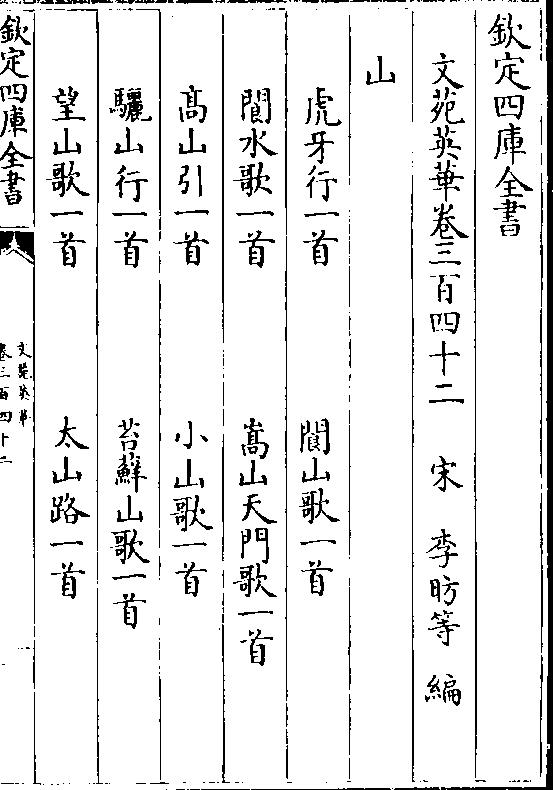 欽定四庫全書
文苑英華卷三百四十二　宋　李昉等　編
山
虎牙行一首　閬山歌一首
閬水歌一首　嵩山天門歌一首
髙山引一首　小山歌一首
驪山行一首　苔蘚山歌一首
望山歌一首　太山路一首
欽定四庫全書
文苑英華
卷三百四十二